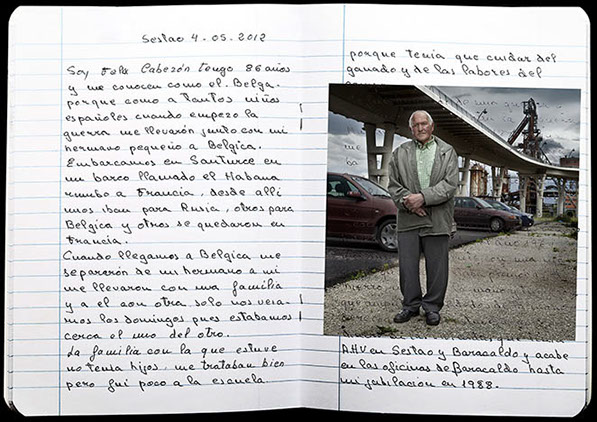 Sestao 4-05.2012
Soy Felo Cabezón tengo 86 años
y me conocen como el Belga.
porque como a tantos niños
españoles cuando empezo la
guerra me llevarón junto con mi
hermano pequeño a Belgica.
Embarcamos en Santurce en
un barco llamado el Habana
rumbo a Francia, desde alli
unos iban para Rusia, otros para
Belgica y otros se quedaron en
Francia.
Cuando llegamos a Belgica me
separarón de mi hermano a mi
me llevaron con una familia
y a el con otra solo nos veia-
mos los domingos pues estabamos
cerca el uno del otro.
La familia con la que estuve
no tenia hijos, me trataban bien
pero fui poco a la escuela.
porque tenia que cuidar del
ganado y de las labores del
AHV en Sestao y Baracaldo y acabe
en las oficinas de Baracaldo hasta
mi jubilacion en 1988.